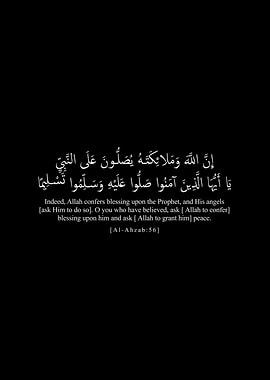 إِنَّ اللَّهَ وَمَلَائِكَتَهُ يُصَلُّونَ عَلَى النَّبِيِّ
يَا أَيُّهَا الَّذِينَ آمَنُوا صَلُّوا عَلَيْهِ وَسَلِّمُوا تَسْلِيمًا
Indeed, Allah confers blessing upon the Prophet, and His angels
[ask Him to do so]. O you who have believed, ask [ Allah to confer]
blessing upon him and ask [ Allah to grant him] peace.
[Al-Ahzab:56]